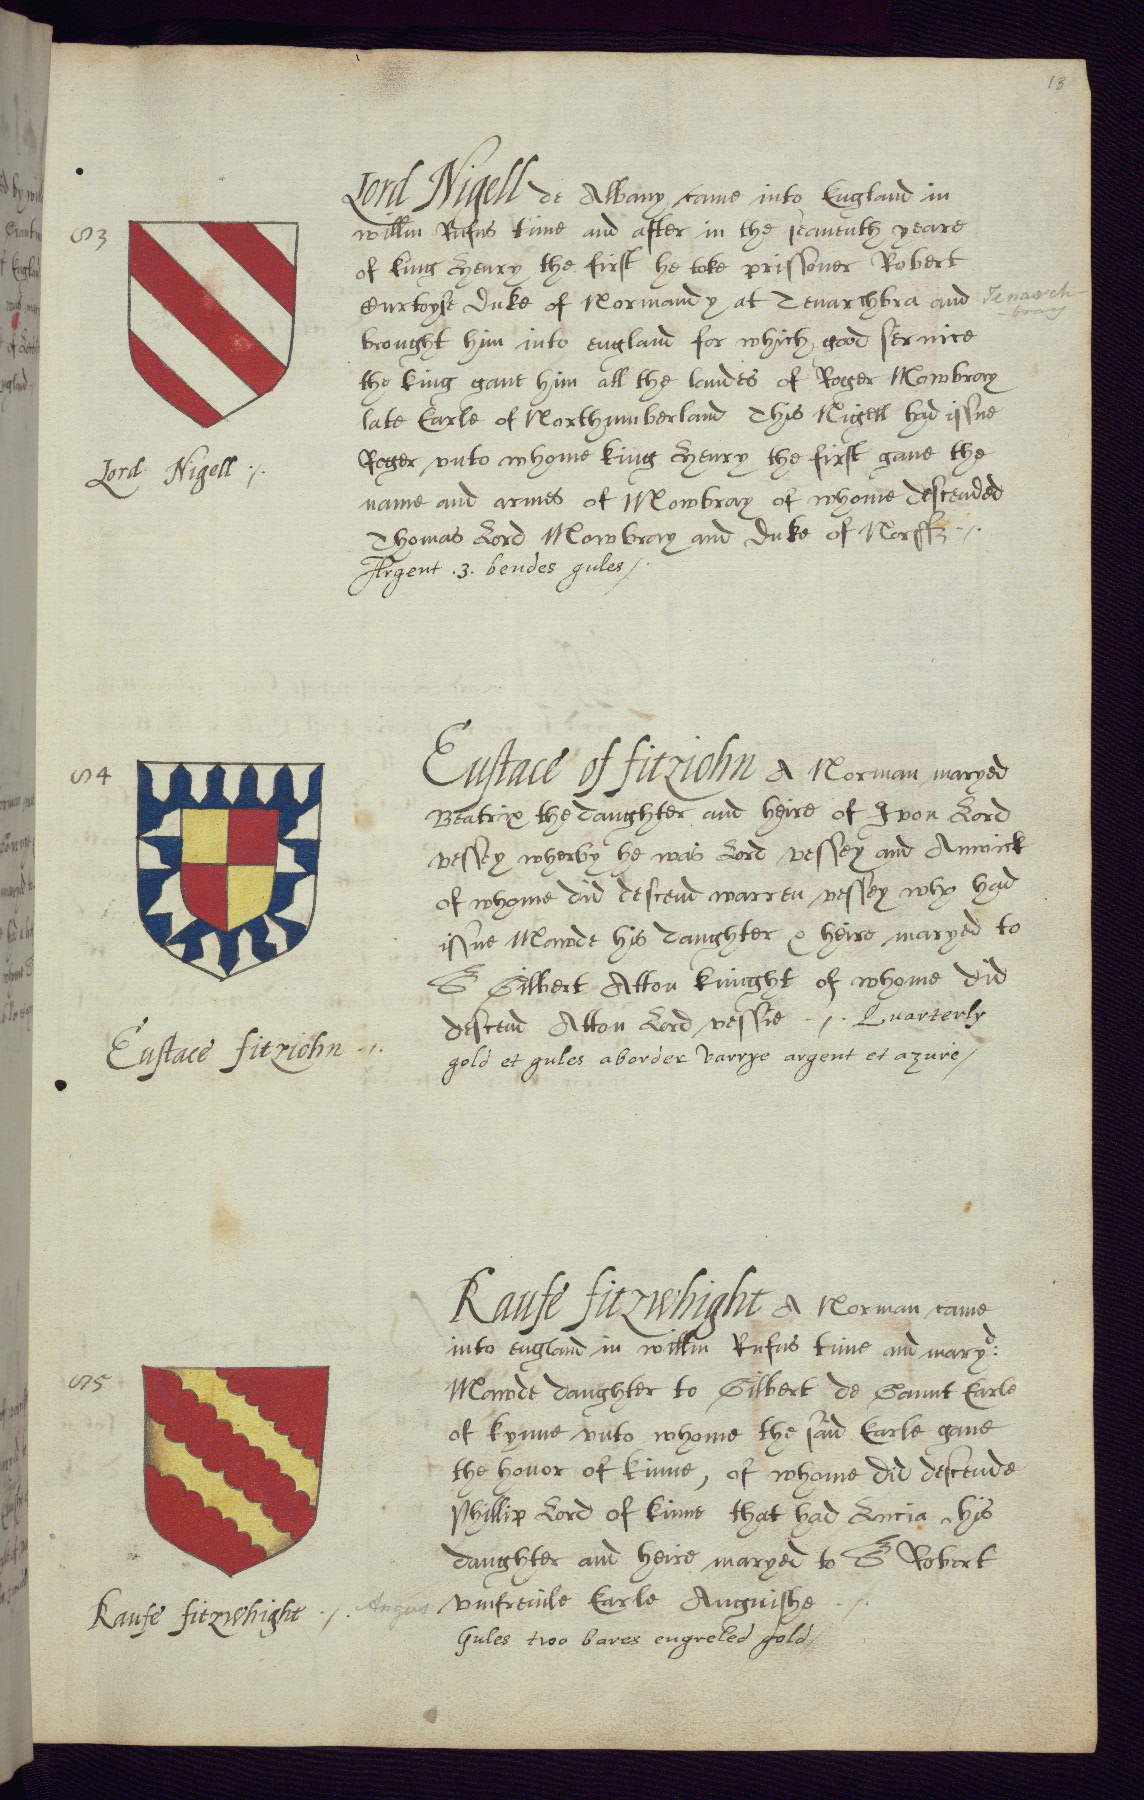 13
53
Lord Nigell de Albany came into England in
willm Rufus time and after in the seaventh yeare
of king Henry the first he toke prissoner Robert
Curtoyse duke of Normandy at Tenarchbra and
Tenarch-
bray
brought him into england for which good service
the king gave him all the landes of Roger Mowbray
late Earle of Northumberland This Nigell had issue
Roger unto whome king Henry the first gave the
name and armes of Mowbray of whome descended
Thomas Lord Mowbray and duke of Norff
Argent .3. bendes gules
Lord Nigell
54
Eustace of fitziohn A Norman maryed
Beatrix the daughter and heire of Ivon Lord
vessey wherby he was Lord vessey and Anwick
of whome did descend warren vessey who had
issue Mawde his daughter & heire maryed to
Sr Gilbert Atton knight of whome did
descend Atton Lord vessie Quarterly
gold et gules a border varrye argent et azure
Eustace fitziohn
55
Raufe fitzwhight A Norman came
into england in willm Rufus time and maryd:
Mawde daughter to Gilbert de Gaunt Earle
of kynne unto whome the said Earle gave
the honor of kinne, of whome did descende
Phillip Lord of kinne that had Lucia his
daughter and heire maryed to Sr Robert
Angus
vmfrevile Earle Anguishe
Gules two bares engreled gold
Raufe fitzwhight